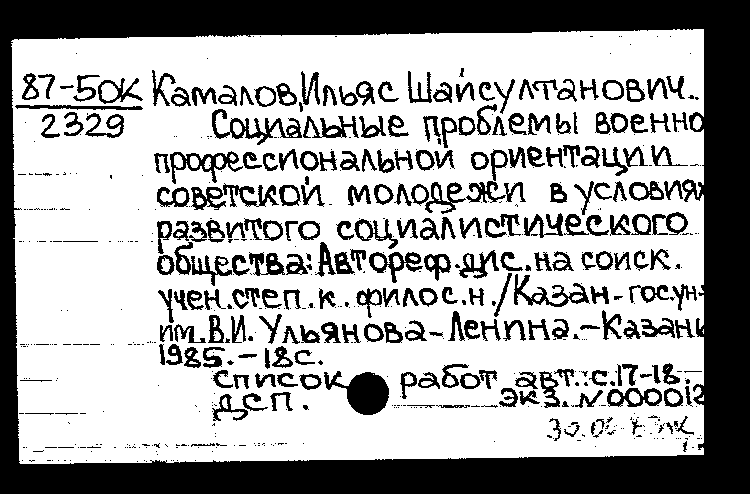 87-5ОК Камалов, Ильяс Шайсултанович.
2329 Социальные проблемы военно
профессиональной ориентации
советской молодежи в условиях
развитого социалистического
общества: Автореф. дис. на соиск.
учен. степ. к. филос. н. / Казан. гос. ун-
им. В.И. Ульянова-Ленина. - Казань
1985. - 18 с.
Список работ авт.: с. 17-18.
ДСП. экз. N 000012
30.06